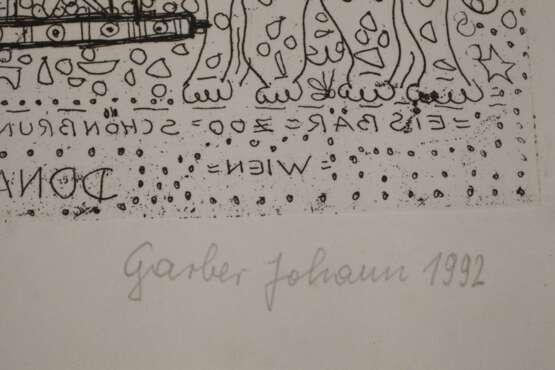 = EISBÄR = ZOO = SCHÖNBRUN
= WIEN =
DONA
Garber Johann 1992